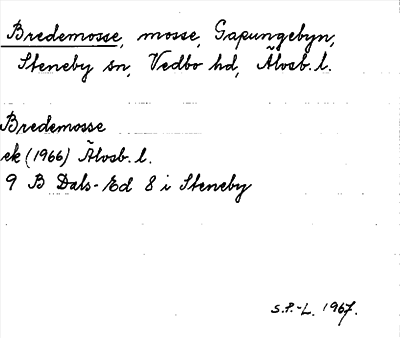 Bredemosse, mosse, Gapungebyn,
Steneby sn, Vedbo hd, Älvsb. l.
Bredemosse
ek (1966) Älvsb. l.
9 B Dals-Ed 8 i Steneby
S.P.-L. 1967.